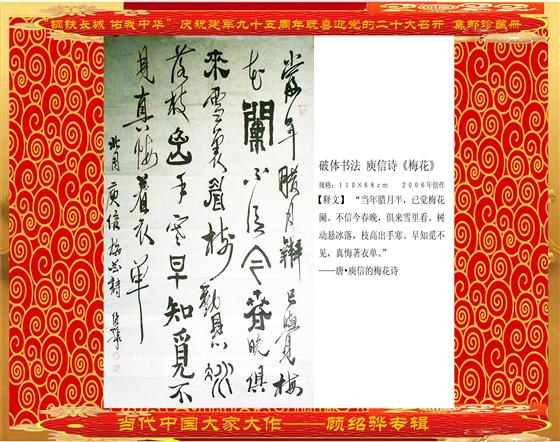 "钢铁长城 佑我中华"庆祝建军九十五周年既喜迎党的二十大召开 集邮珍藏册
當年臘月半已覺梅
花闌不信今春晚俱
來雪裏看樹動懸冰
落枝高手寒早知覓不
見真悔著衣單
庾信梅花詩
破体书法 庾信诗《梅花》
规格:110×68cm 2006年创作
【释文】 "当年腊月半,已觉梅花
阑。不信今春晚,俱来雪里看。树
动悬冰落,枝高出手寒。早知觅不
见,真悔著衣单。"
——唐•庾信的梅花诗
当代中国大家大作——顾绍骅专辑